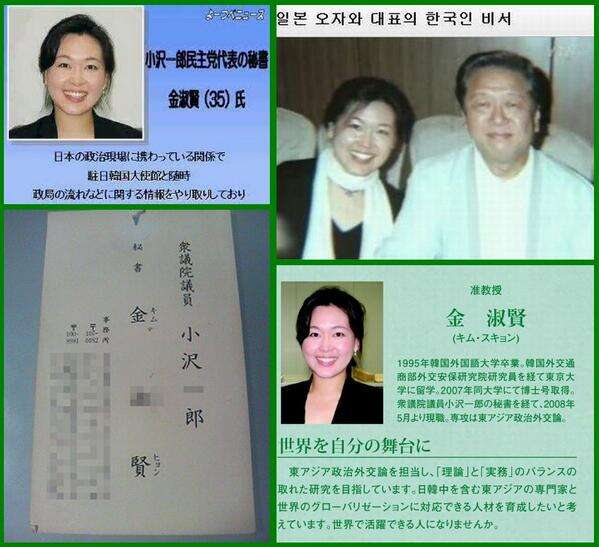 よーつべニュース
小沢一郎民主党代表の秘書
金淑賢(35)氏
日本の政治現場に携わっている関係で
駐日韓国大使館と随時
政局の流れなどに関する情報をやり取りしており
일본 오자와 대표의 한국인 비서
衆議院議員 小沢一郎
秘書 金 賢
キム
ヒョン
事務所
〒105-0052
〒100-8981
准教授
金 淑賢
(キム・スキョン)
1995年韓国外国語大学卒業。韓国外交通
商部外交安保研究院研究員を経て東京大
学に留学。2007年同大学にて博士号取得。
衆議院議員小沢一郎の秘書を経て、2008年
5月より現職。専攻は東アジア政治外交論。
世界を自分の舞台に
東アジア政治外交論を担当し、「理論」と「実務」のバランスの
取れた研究を目指しています。日韓中を含む東アジアの専門家と
世界のグローバリゼーションに対応できる人材を育成したいと考
えています。世界で活躍できる人になりませんか。